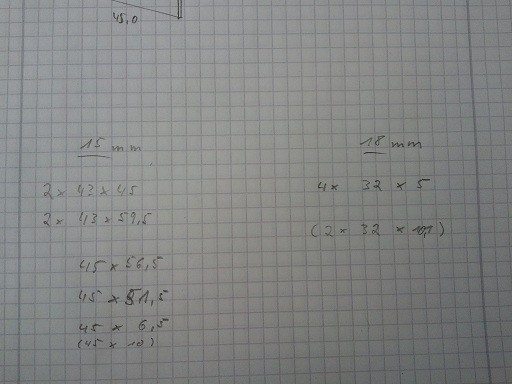 45,0
15 mm
2 x 43 x 45
2 x 43 x 59,5
45 x 56,5
45 x 51,5
45 x 6,5
(45 x 10)
18 mm
4 x 32 x 5
(2 x 32 x )